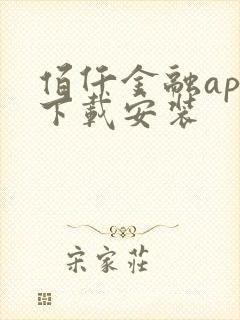 佰仟金融ap
下载安装
宋家莊